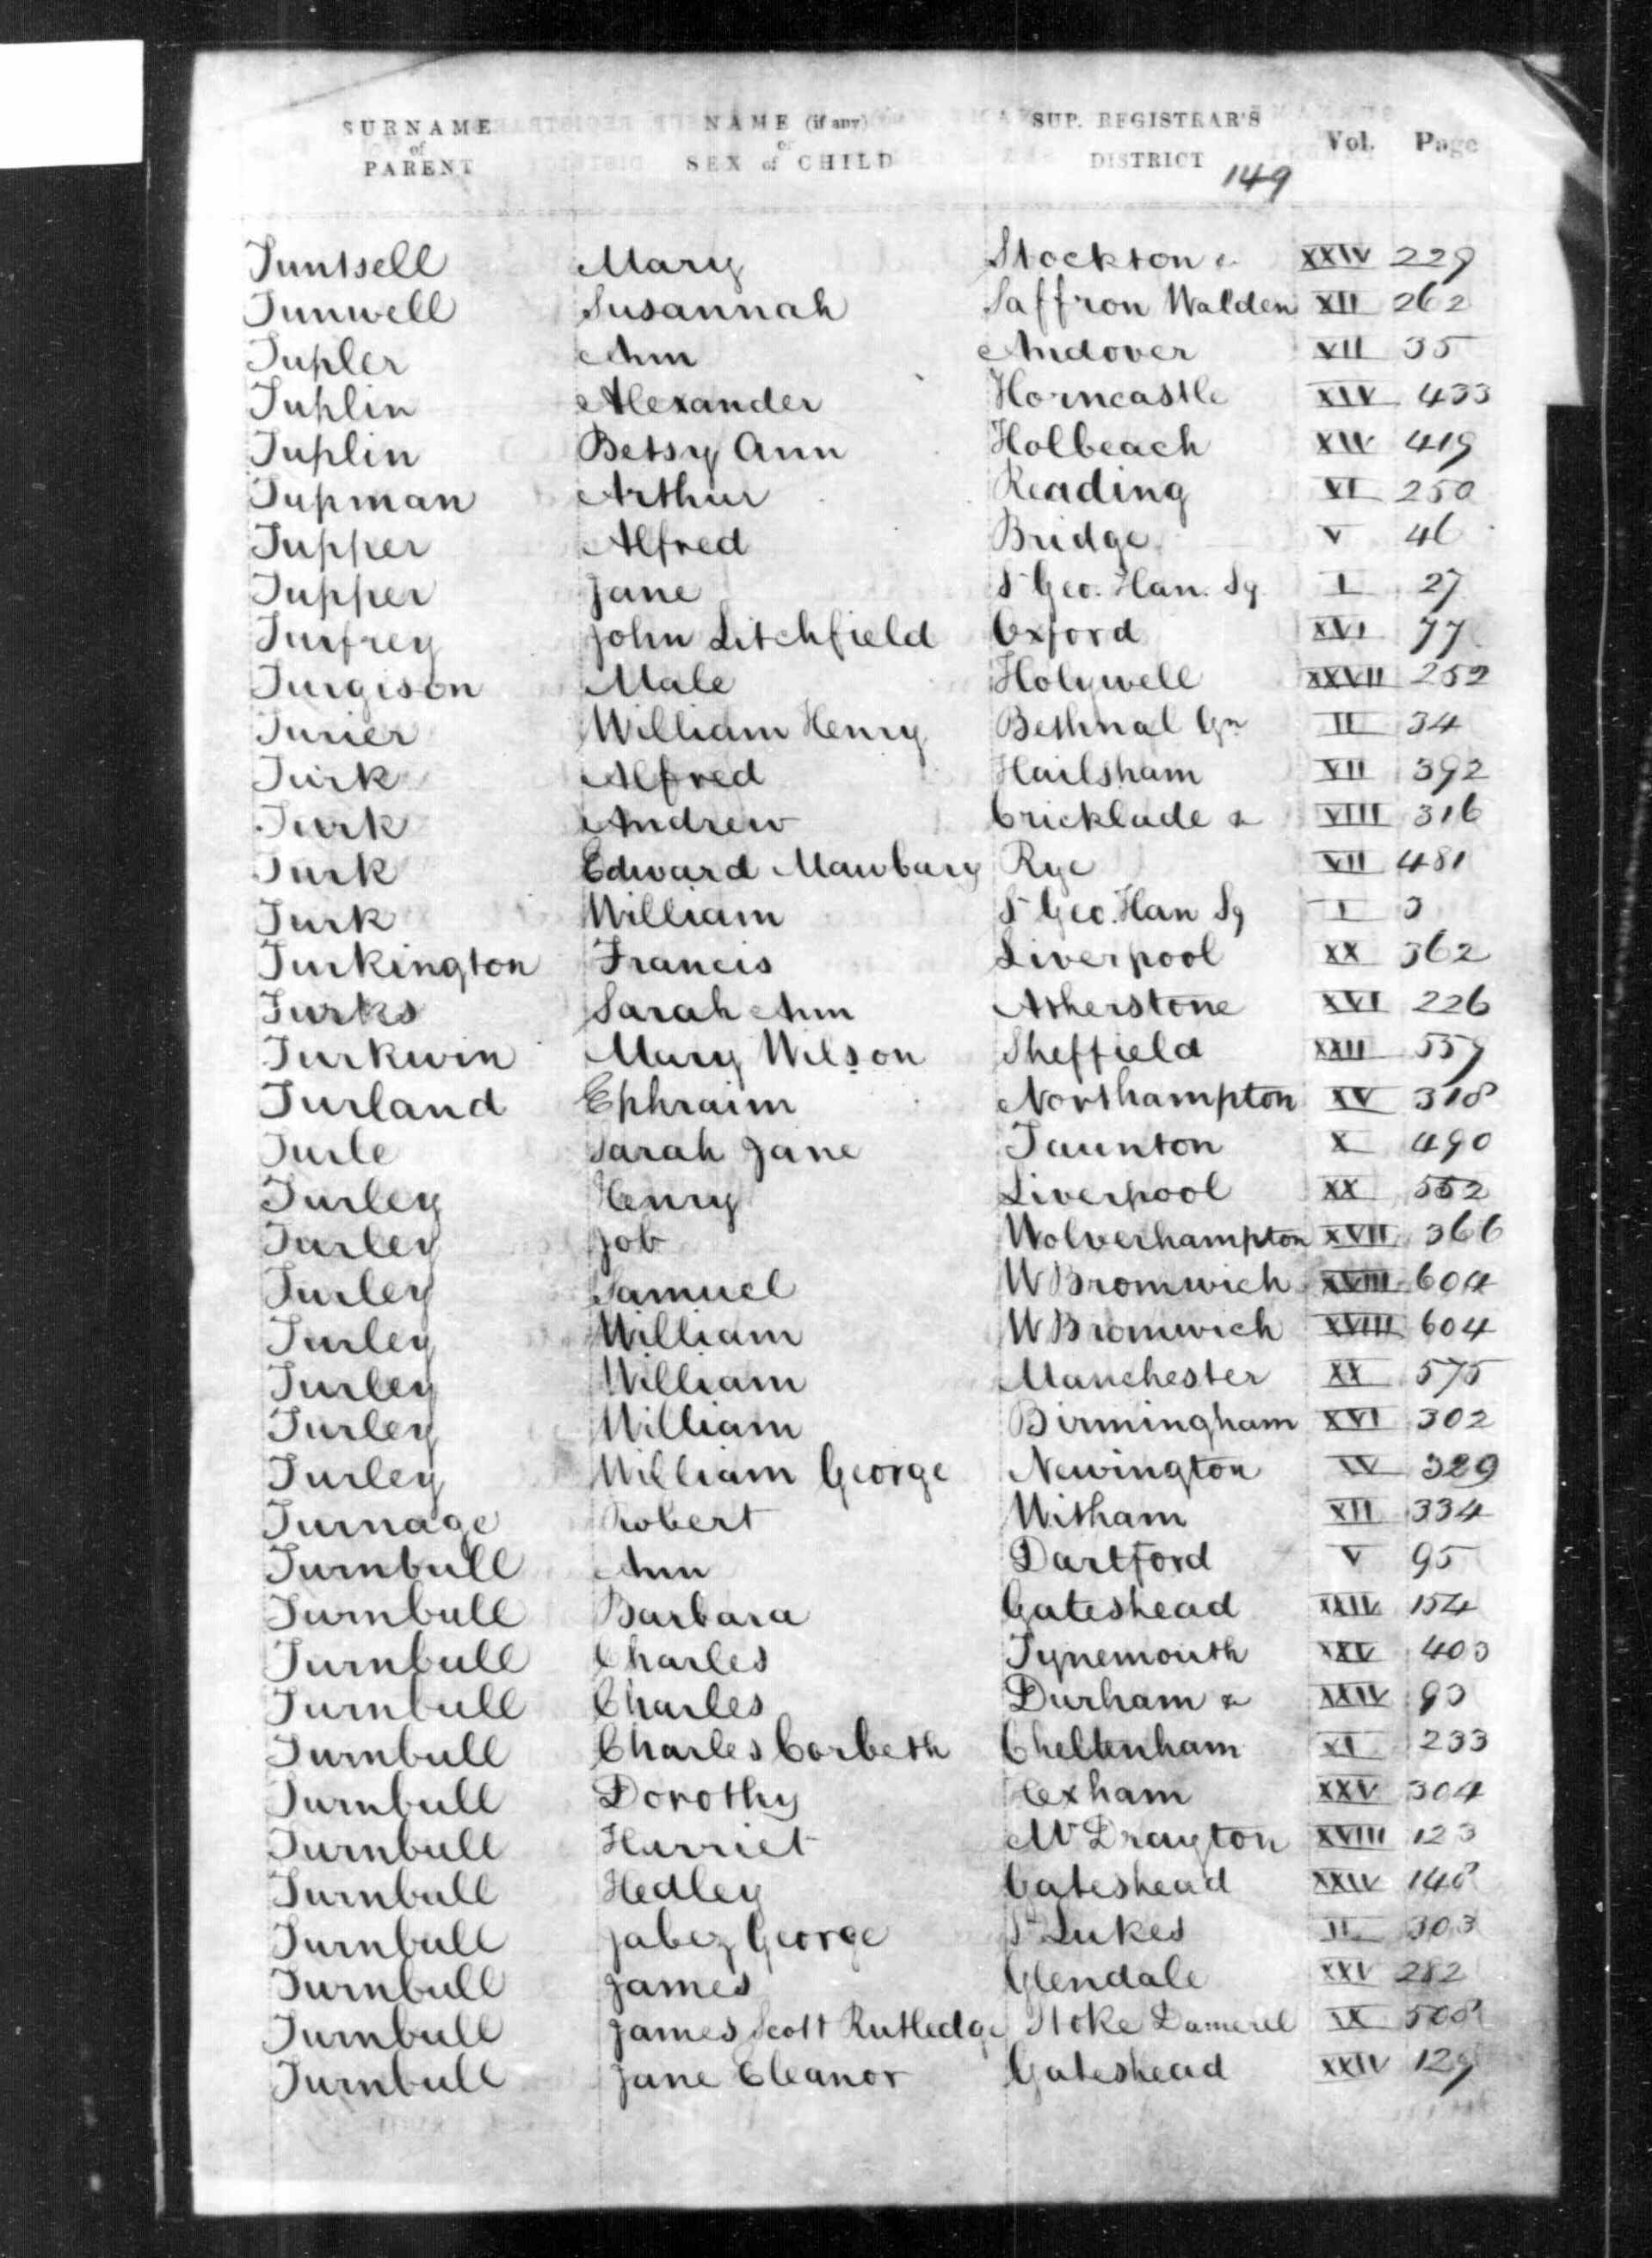 SURNAME of PARENT NAME (if any) or SEX of CHILD SUP. REGISTRAR'S DISTRICT Vol. Page
149
Tuntsell Mary Stockton & XXIV 229
Tunwell Susannah Saffron Walden XII 262
Tupler Ann Andover VII 35
Tuplin Alexander Horncastle XIV 433
Tuplin Betsy Ann Holbeach XIV 419
Tupman Arthur Reading VI 250
Tupper Alfred Bridge V 46
Tupper Jane St Geo. Han. Sq I 27
Turfrey John Litchfield Oxford XVI 77
Turgison Male Holywell XXVII 252
Turier William Henry Bethnal Gn II 34
Turk Alfred Hailsham VII 392
Turk Andrew Cricklade & VIII 316
Turk Edward Mawbary Rye VII 481
Turk William St Geo. Han Sq I 3
Turkington Francis Liverpool XX 362
Turks Sarah Ann Atherstone XVI 226
Turkwin Mary Wilson Sheffield XXII 559
Turland Ephraim Northampton XV 318
Turle Sarah Jane Taunton X 490
Turley Henry Liverpool XX 552
Turley Job Wolverhampton XVII 366
Turley Samuel W Bromwich XVIII 604
Turley William W Bromwich XVIII 604
Turley William Manchester XX 575
Turley William Birmingham XVI 302
Turley William George Newington IV 329
Turnage Robert Witham XII 334
Turnbull Ann Dartford V 95
Turnbull Barbara Gateshead XXIV 154
Turnbull Charles Tynemouth XXV 403
Turnbull Charles Durham & XXIV 93
Turnbull Charles Corbeth Cheltenham XI 233
Turnbull Dorothy Hexham XXV 304
Turnbull Harriet Mt Drayton XVIII 123
Turnbull Hedley Gateshead XXIV 148
Turnbull Jabez George St Lukes II 303
Turnbull James Glendale XXV 282
Turnbull James Scott Rutledge Stoke Damerel IX 508
Turnbull Jane Eleanor Gateshead XXIV 129